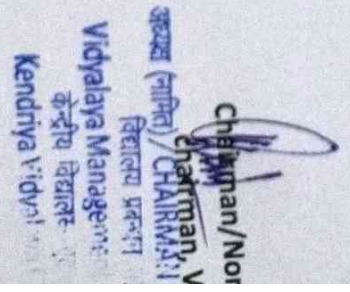 Chairman/Nor
Chairman, V
अध्यक्ष (नामित)/ CHAIRMAN
विद्यालय प्रबन्धन
Vidyalaya Manageme
केन्द्रीय विद्यालय
Kendriya Vidyal